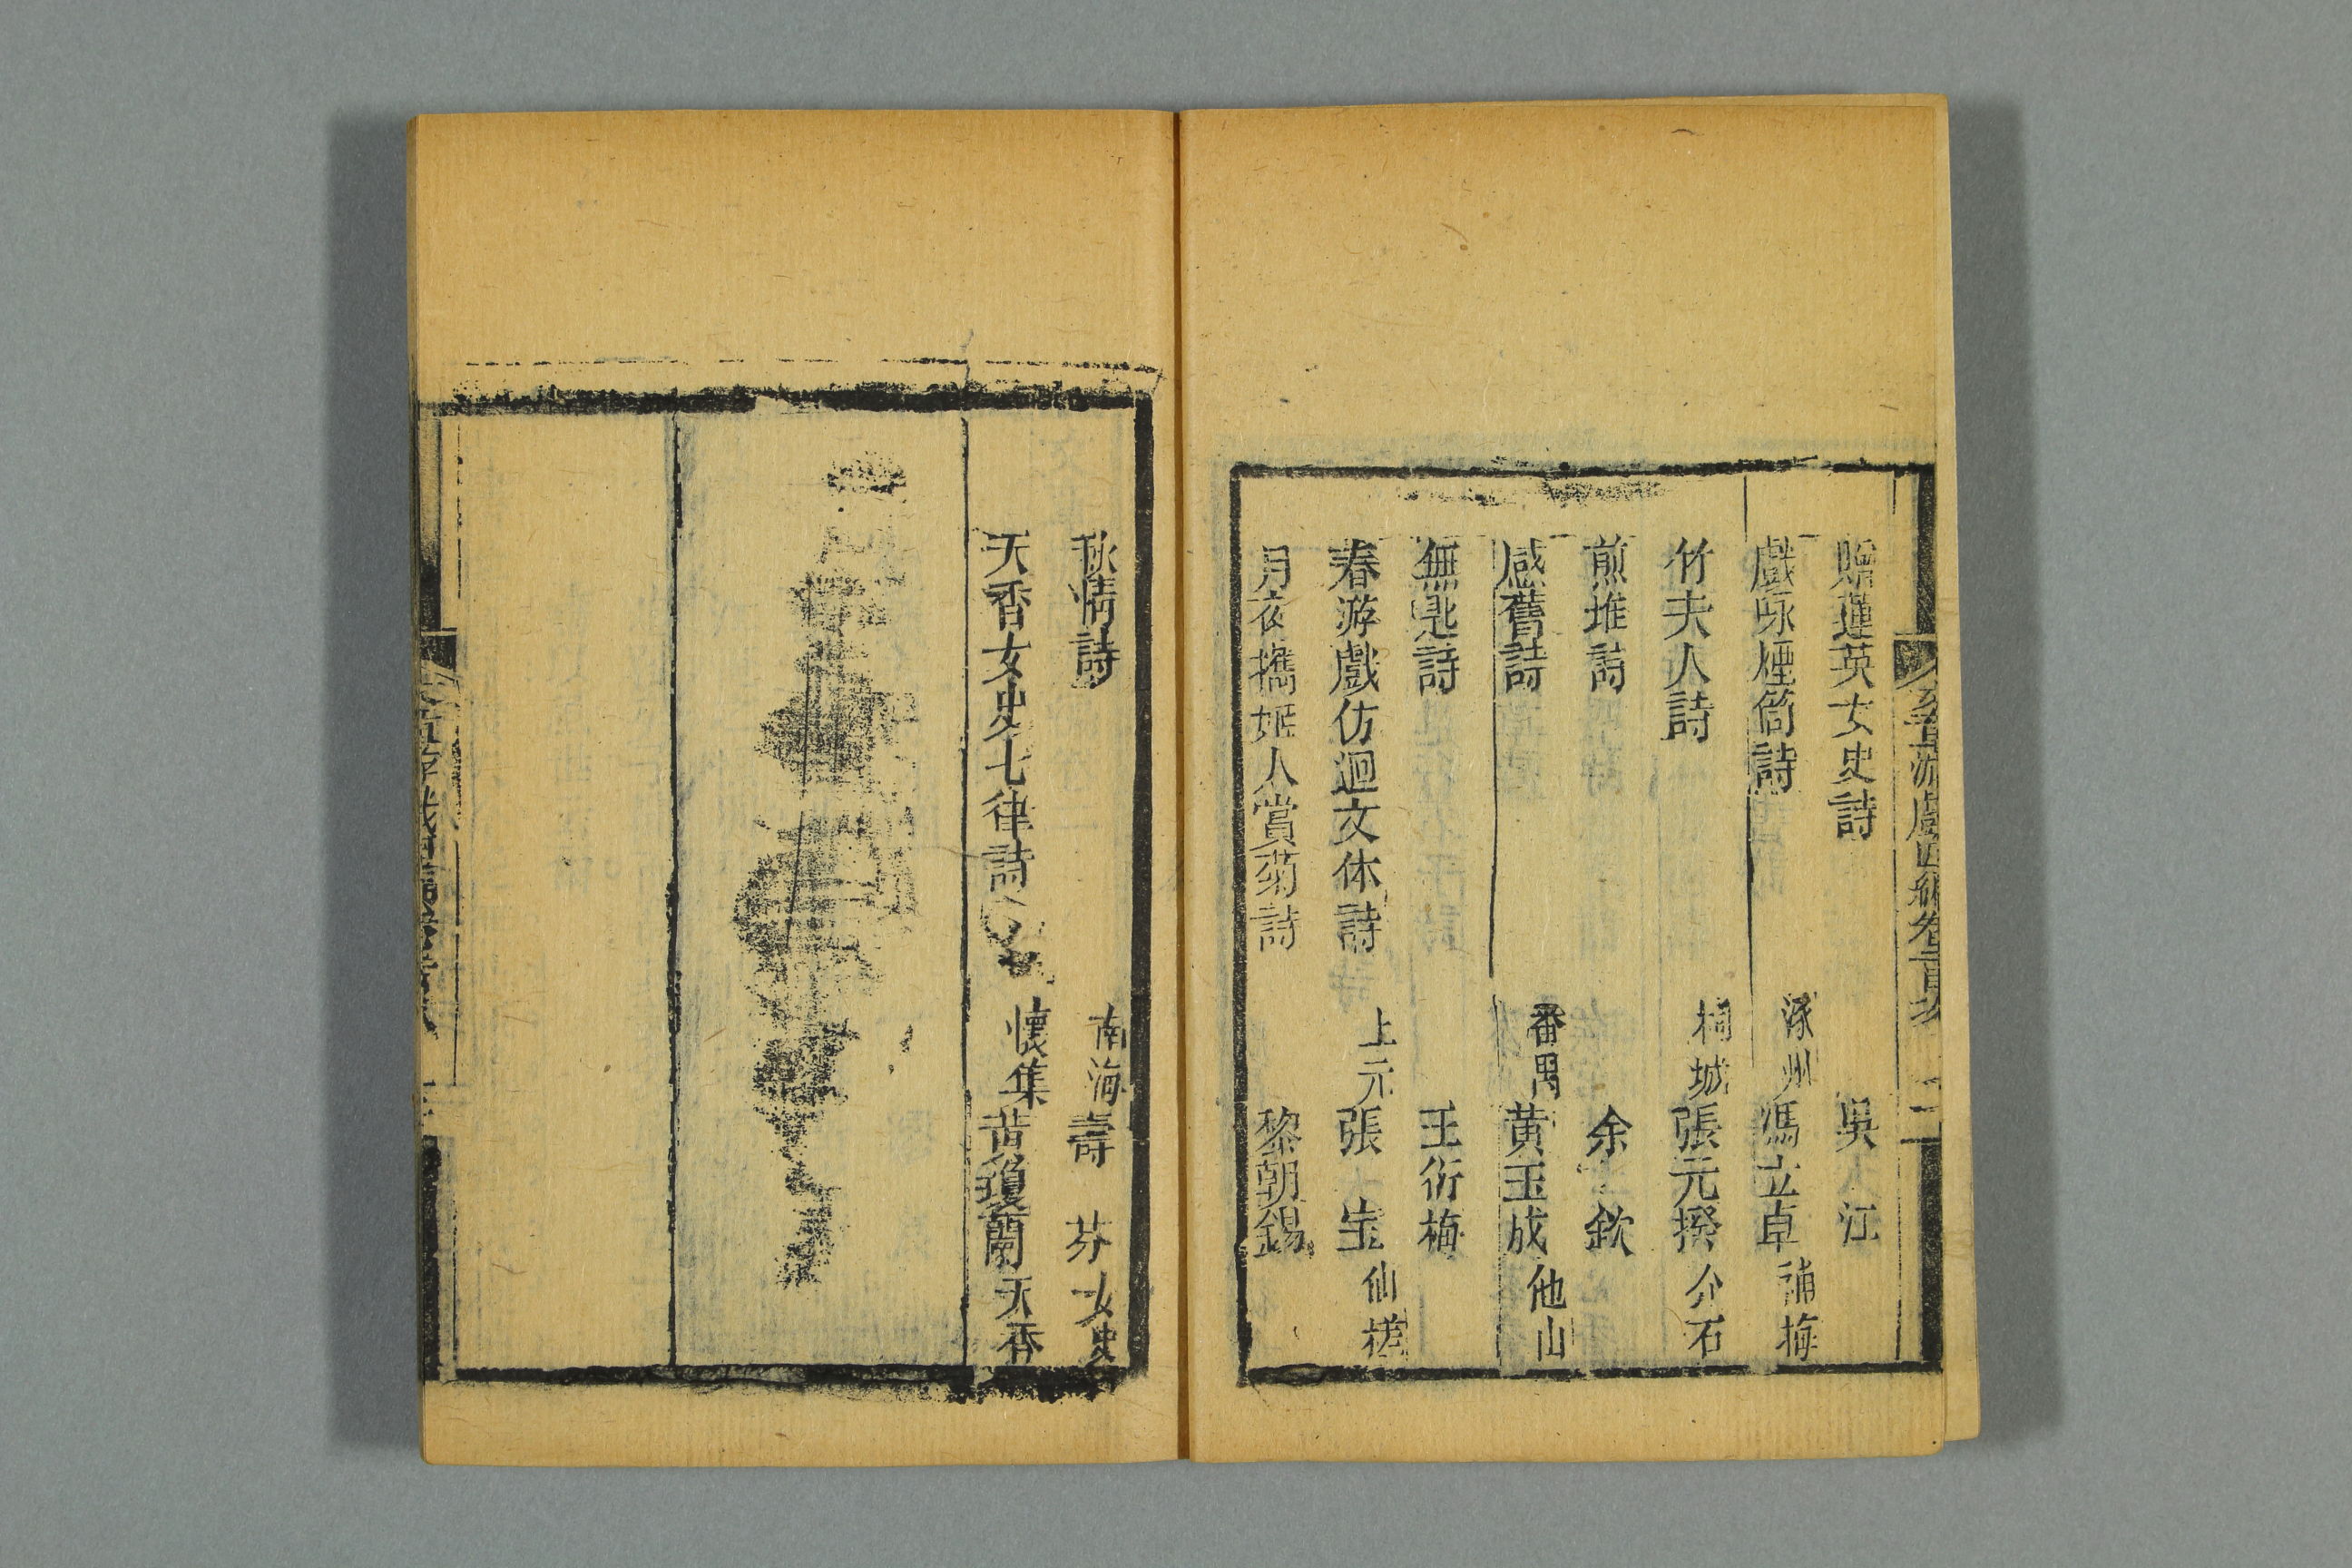 贈蓮英女史詩 吳 江
戲咏煙筒詩 涿州馮立卓補梅
竹夫人詩 桐城張元揆介石
煎堆詩 余 欽
感舊詩 番禺黄玉成他山
無題詩 王衍梅
春游戲仿迴文体詩 上元張 宝仙槎
月夜攜姬人賞菊詩 黎朝錫
秋情詩 南海壽 芬女史
天香女史七律詩 懷集黄瓊蘭天香